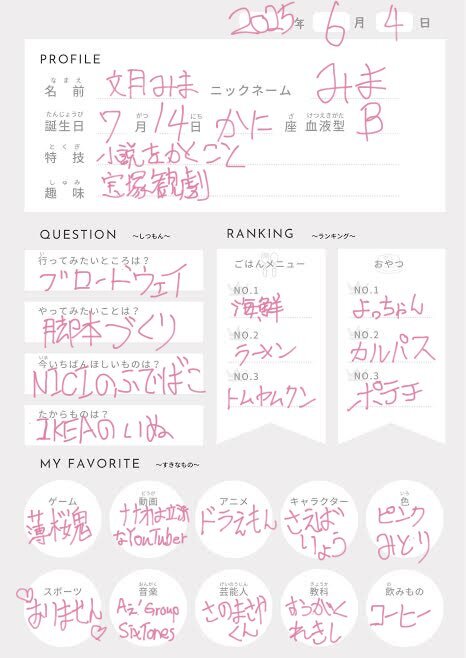 2025年 6月 4日
PROFILE
なまえ
名前 文月みま ニックネーム みま
たんじょうび がつ にち ざ けつえきがた
誕生日 7月14日 かに座 血液型 B
とくぎ
特技 小説をかくこと
しゅみ
趣味 宝塚観劇
QUESTION ～しつもん～
い
行ってみたいところは？
ブロードウェイ
やってみたいことは？
脚本づくり
いま
今いちばんほしいものは？
NICIのふでばこ
たからものは？
IKEAのいぬ
RANKING ～ランキング～
ごはんメニュー
NO.1
海鮮
NO.2
ラーメン
NO.3
トムヤムクン
おやつ
NO.1
よっちゃん
NO.2
カルパス
NO.3
ポテチ
MY FAVORITE ～すきなもの～
ゲーム
薄桜鬼
どうが
動画
ナナオは立派
なYouTuber
アニメ
ドラえもん
キャラクター
さえば
りょう
いろ
色
ピンク
みどり
スポーツ
ありません
おんがく
音楽
Aぇ!Group
SixTones
げいのうじん
芸能人
さのまさや
くん
きょうか
教科
すうがく
れきし
の
飲みもの
コーヒー